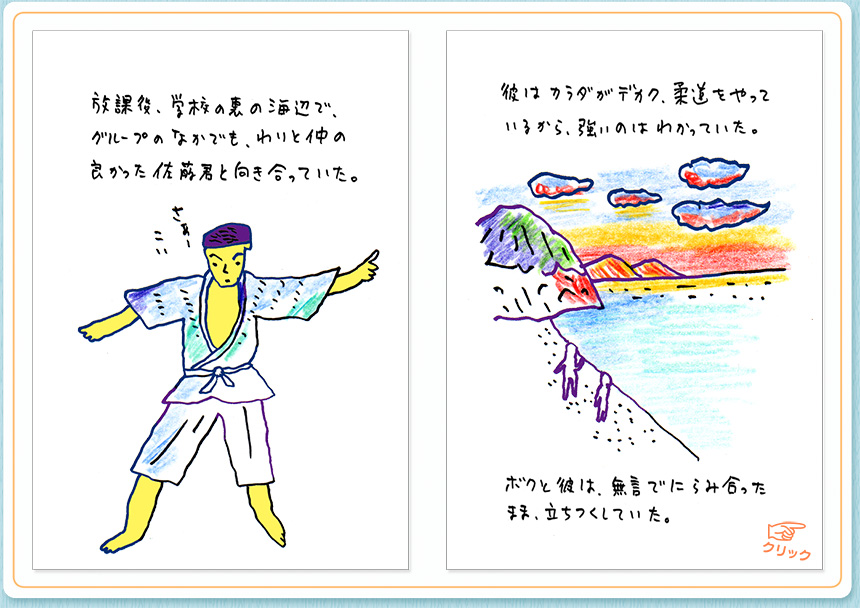 放課後、学校の裏の海辺で、
グループのなかでも、わりと仲の
良かった佐藤君と向き合っていた。
さぁー
こい
彼はカラダがデカク、柔道をやって
いるから、強いのはわかっていた。
ボクと彼は、無言でにらみ合った
まま、立ちつくしていた。
クリック